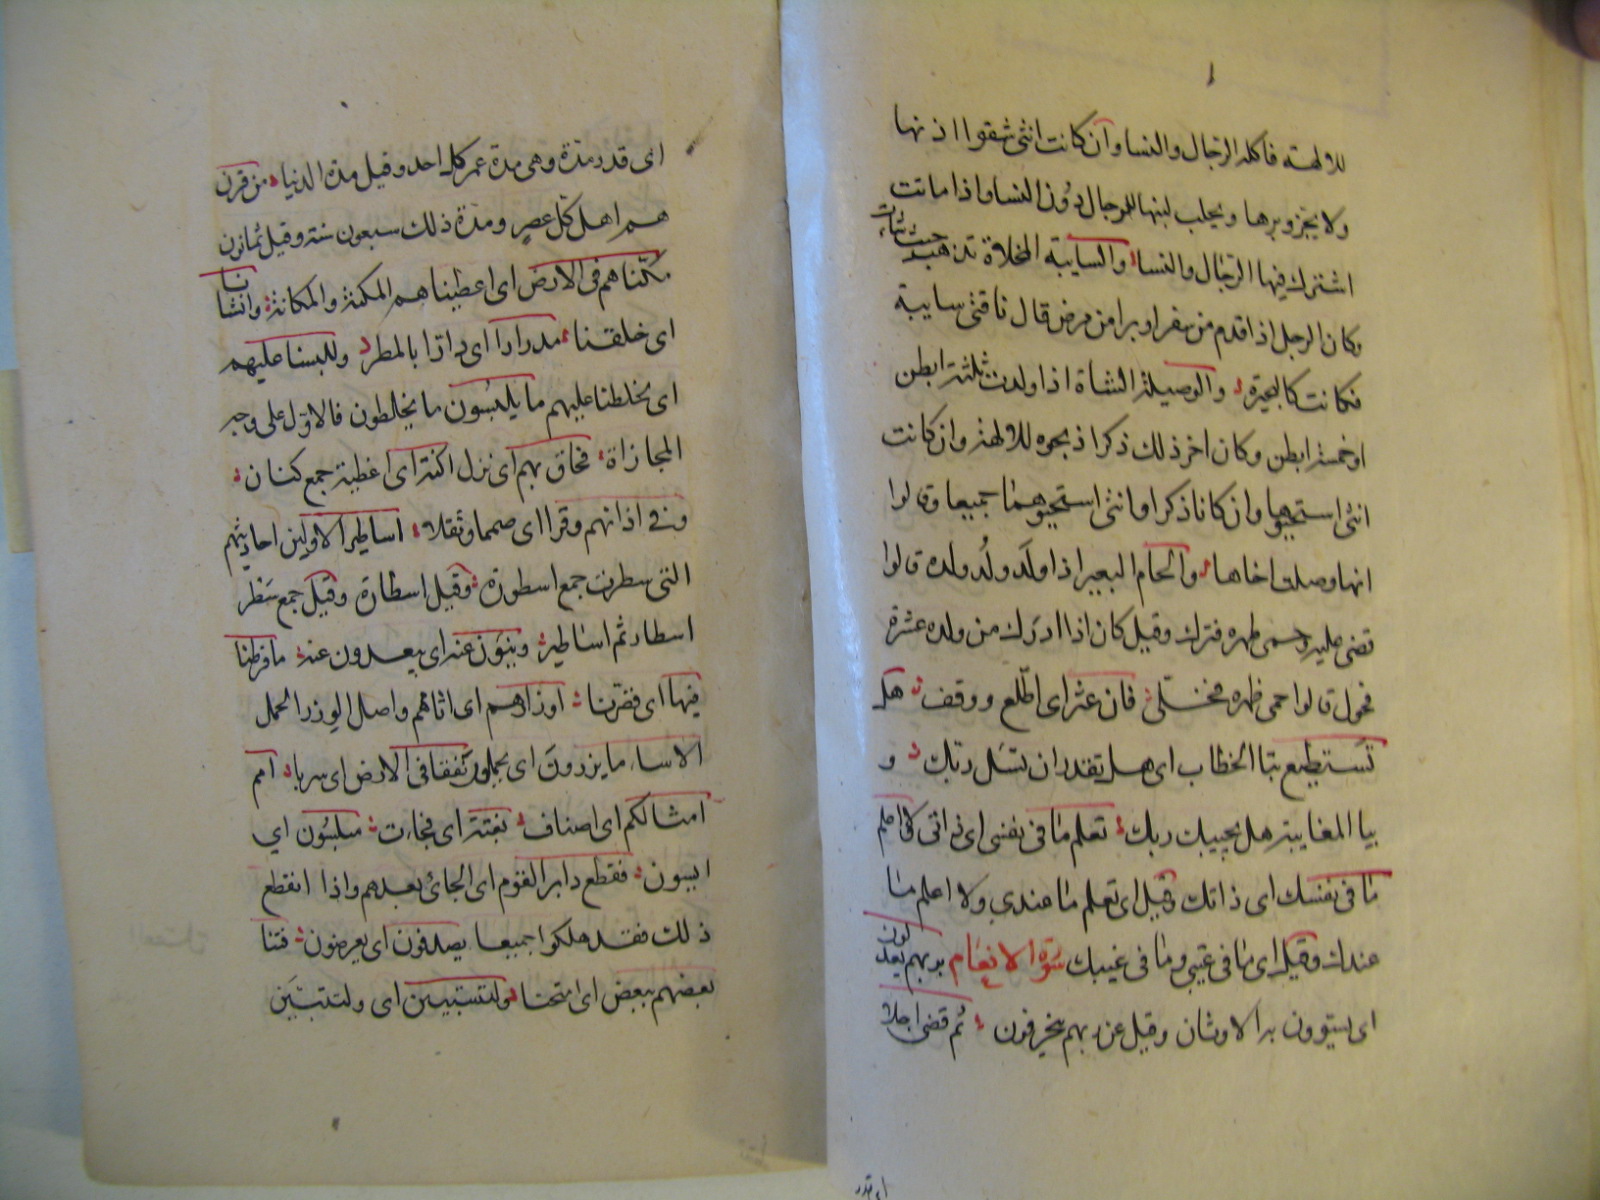 للالهة فاكله الرجال والنسا وان كانت انثى شقوا اذنها
ولا يجزوبرها ويحلب لبنها للرجال دون النسا واذا ماتت
اشترك فيها الرجال والنسا والسايبة المخلاة تذهب حيث شات
وكان الرجل اذا قدم من سفر او برا من مرض قال ناقتى سايبة
فكانت كالبحيرة والوصيلة الشاة اذا ولدت ثلثة ابطن
او خمسة ابطن وكان اخر ذلك ذكرا ذبحوه للالهة وان كانت
انثى استحيوها وان كانا ذكرا وانثى استحيوهما جميعا وقالوا
انها وصلت اخاها والحام البعير اذا ولد ولد ولده قالوا
قضى عليه وحمى ظهره فترك وقيل كان اذا ادرك من ولده عشرة
فحول قالوا حمى ظهره فخلى فان عثر اى اطلع ووقف هل
تستطيع بتا الخطاب اى هل تقدر ان تسل ربك و
بيا المغايبة هل يجيبك ربك تعلم ما فى نفسى اى ذاتى لا اعلم
ما فى نفسك اى ذاتك وقيل اى تعلم ما عندي ولا اعلم ما
عندك وقيل اى ما فى غيبى وما فى غيبك سورة الانعام بربهم يعدلون
اى يستوون به الاوثان وقيل عن ربهم ينحرفون ثم قضى اجلا
اى قدر
اى قدر مدة وهى مدة عمر كل احد وقيل مدة الدنيا من قرن
هم اهل كل عصر ومدة ذلك سبعون سنة وقيل ثمانون
مكناهم فى الارض اى اعطيناهم المكنة والمكانة وانشانا
اى خلقنا مدرارا اى دارا بالمطر وللبسنا عليهم
اى لخلطنا عليهم ما يلبسون ما يخلطون فالاول على وجه
المجازاة فحاق بهم اى نزل اكنة اى اغطية جمع كنان
وفى اذانهم وقرا اى صمما وثقلا اساطير الاولين احاديثهم
التى سطرت جمع اسطورة وقيل اسطارة وقيل جمع سطر
اسطار ثم اساطير وينون عنه اى يبعدون عنه ما فرطنا
فيها اى قصرنا اوزارهم اى اثامهم واصل الوزر الحمل
الا ساء ما يزرون اى يحملون نفقا فى الارض اى سربا امم
امثالكم اى اصناف بغتة اى فجاءت مبلسون اي
ايسون فقطع دابر القوم اى الجائ بعدهم واذا انقطع
ذلك فقد هلكوا جميعا يصدفون اى يعرضون فتنا
بعضهم ببعض اى امتحنا ولتستبين اى ولتتبين